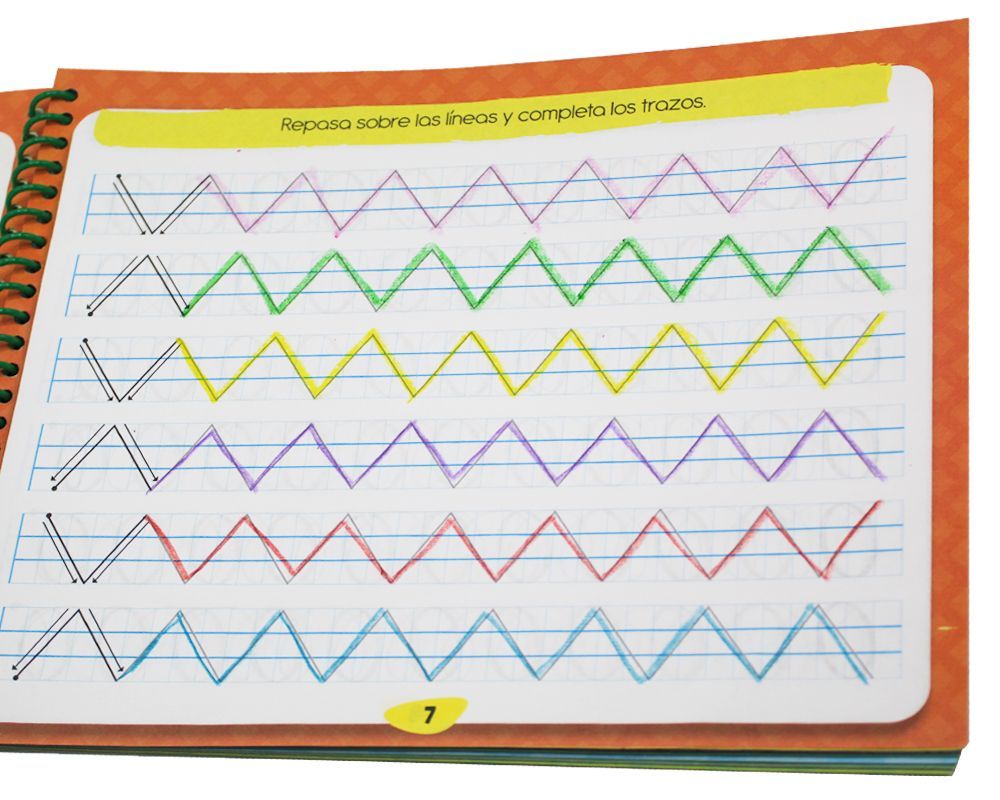 Repasa sobre las líneas y completa los trazos.
7